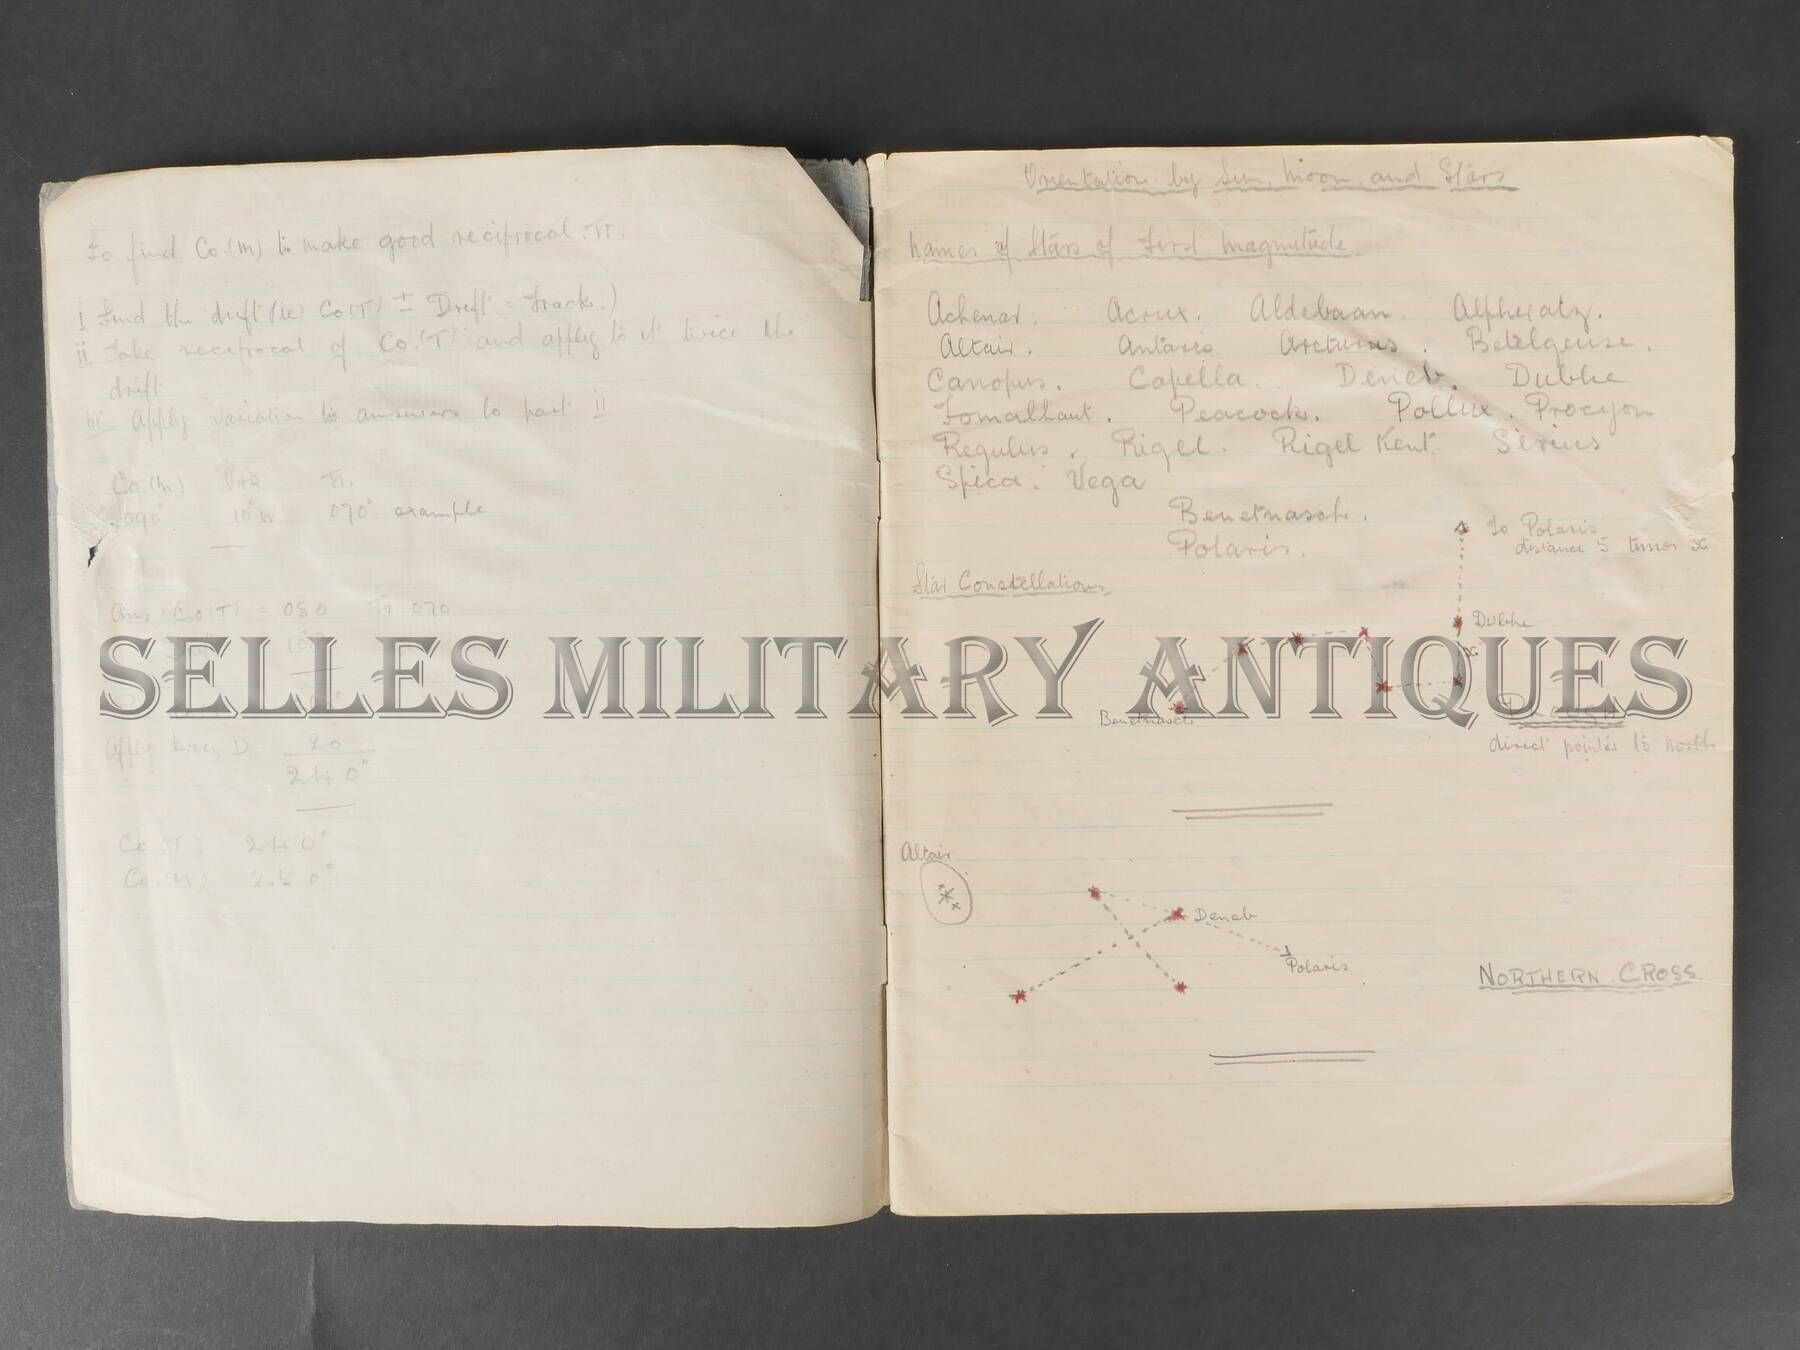 To find Co.(M) to make good reciprocal Tr.
i Find the drift (ie) Co(T) ± Drift = Track.)
ii Take reciprocal of Co.(T) and apply to it twice the
drift
iii Apply variation to answers to part ii
Co.(M) VAR Tr.
090° 10°W 070° example
Ans Co(T) = 080 Tr 070
Apply twice D. 20
240°
Co(T) 240°
Co.(M) 250°
Orientation by Sun, Moon, and Stars
Names of Stars of First Magnitude.
Achenar. Acrux. Aldebaan. Alpheratz.
Altair. Antaris. Arcturus. Betelgeuse.
Canopus. Capella. Deneb. Dubhe
Fomalhaut. Peacock. Pollux. Procyon
Regulus. Rigel. Rigel Kent. Sirius
Spica. Vega
Benetnasch.
Polaris.
To Polaris
distance 5 times x
Star Constellations
Dubhe
x
SELLES MILITARY ANTIQUES
Benetnasch
direct pointer to north
Altair
Deneb
Polaris
NORTHERN CROSS.